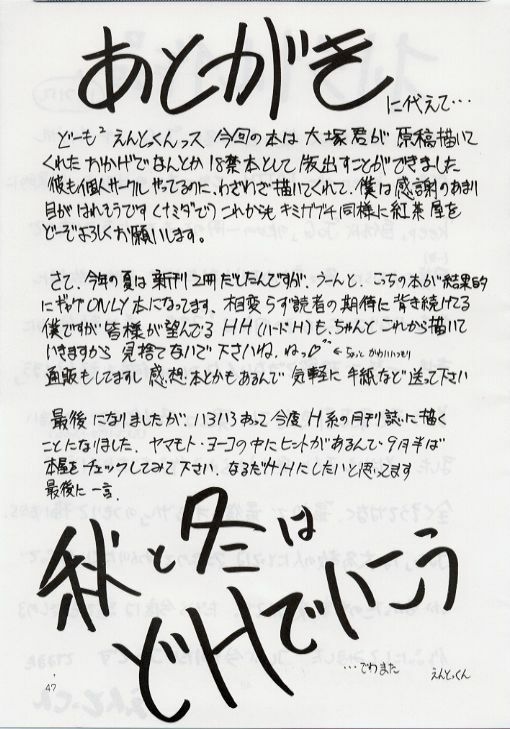 あとがき
に代えて…
どーも²えんどっくんっス 今回の本は大塚君が原稿描いて
くれたおかげでなんとか18禁本として版出すことができました
彼も個人サークルやってるのに、わざわざ描いてくれて、僕は感謝のあまり
目がはれそうです(ナミダで) これからもキミガブチ同様に紅茶屋を
どーぞよろしくお願いします。
さて、今年の夏は新刊2冊だしたんですが、うーんと、こっちの本が結果的
にギャグONLY本になってます、相変らず読者の期待に背き続けてる
僕ですが皆様が望んでるHH(ハードH)も、ちゃんとこれから描いて
いきますから 見捨てないで下さいね。ね。♡ ←ちょっとかわいいっぽく
通販もしてますし感想本とかもあるんで気軽に手紙など送って下さい
最後になりましたが、いろいろあって今度H系の月刊誌に描く
ことになりました、ヤマモト・ヨーコの中にヒントがあるんで・9月半ば
本屋をチェックしてみて下さい、なるだけHにしたいと思ってます
最後に一言、
秋と冬は
どHでいこう
…でわまた えんどっくん
47